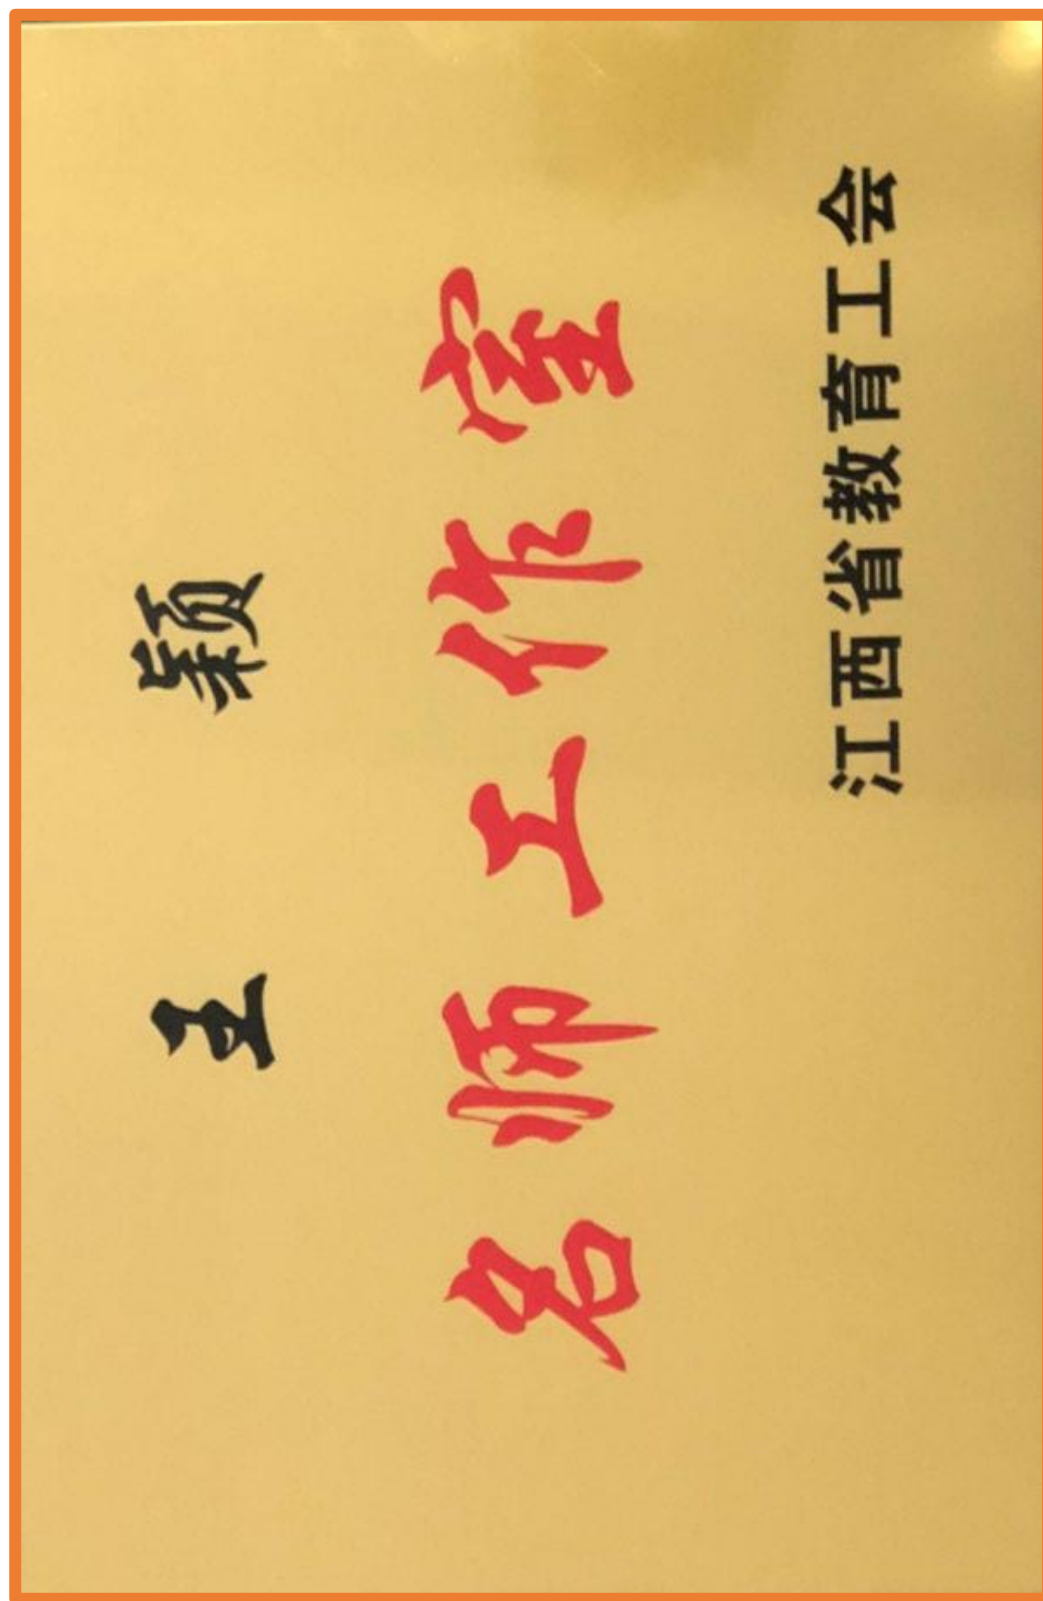 王颖
名师工作室
江西省教育工会